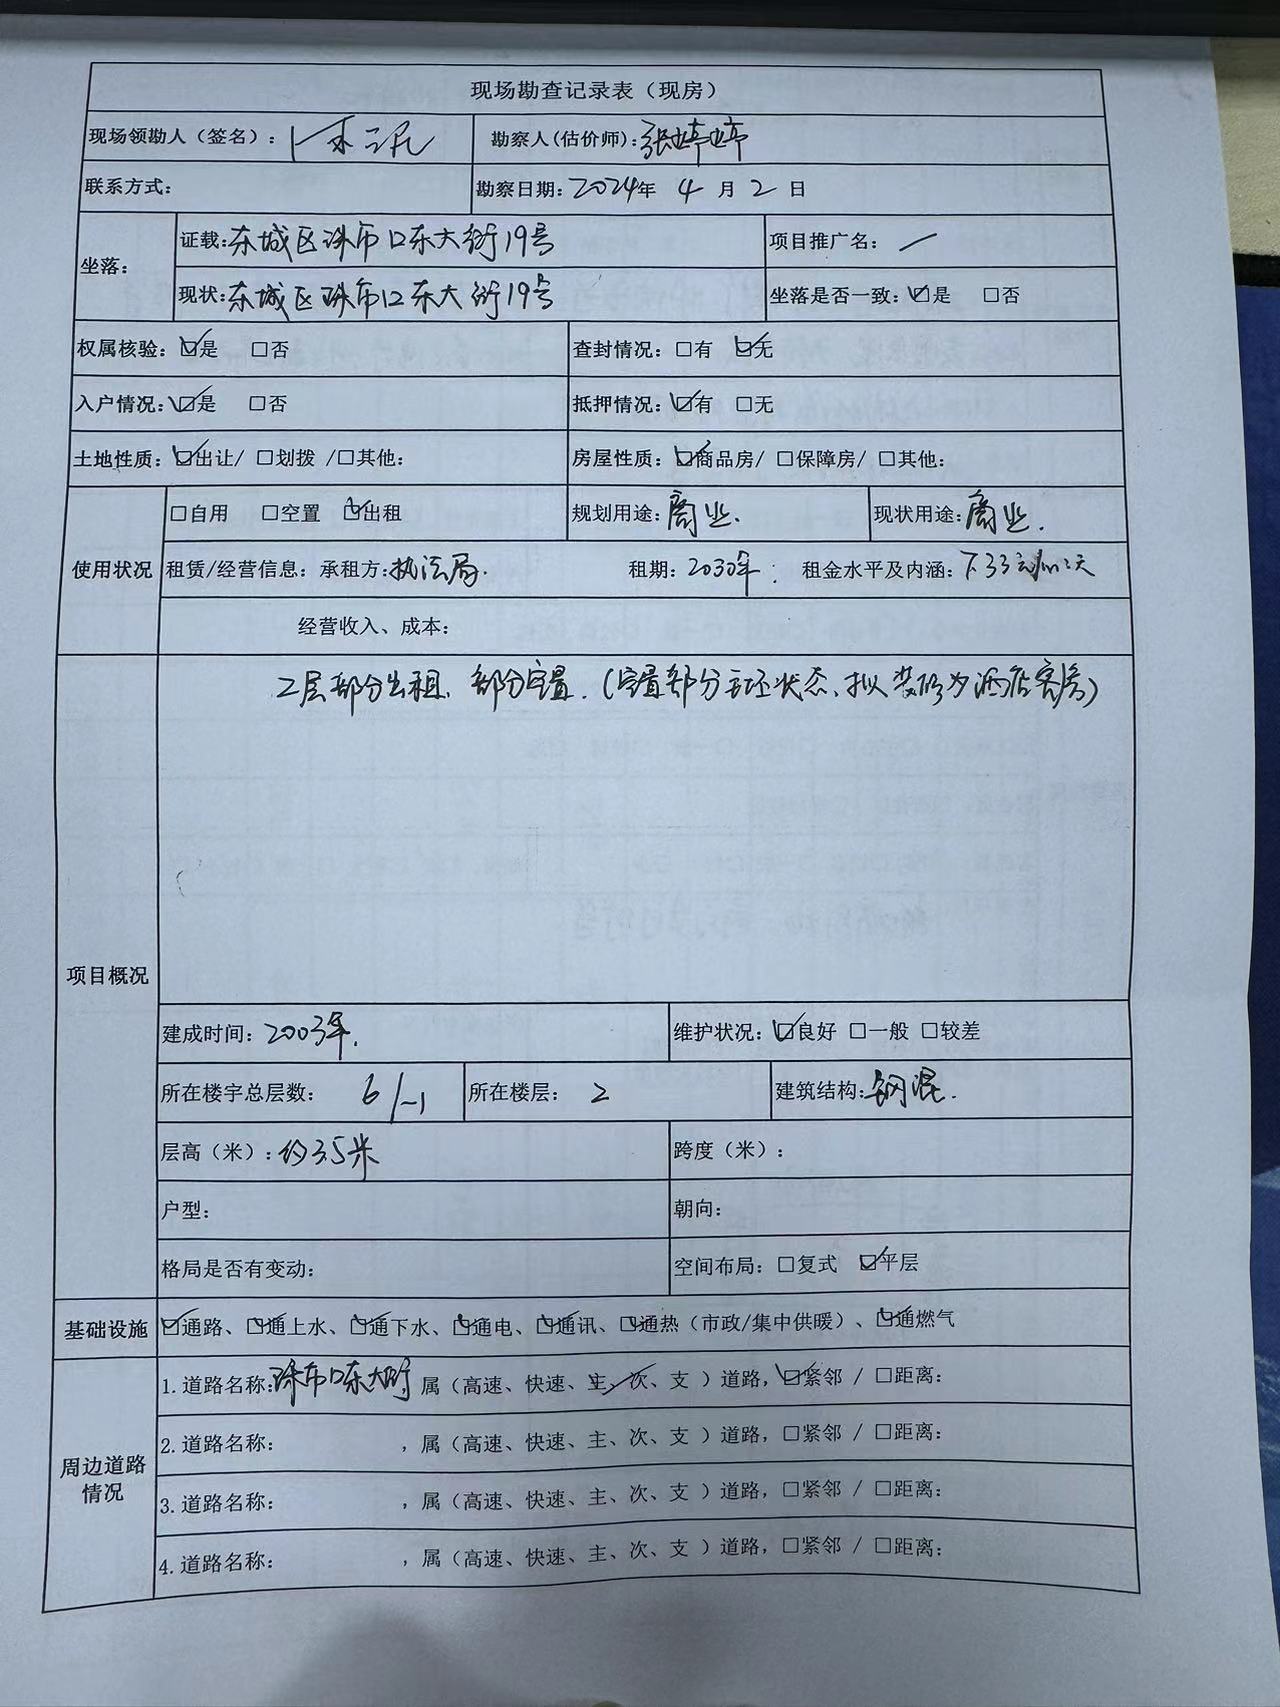 现场勘查记录表（现房）
现场领勘人（签名）： 勘察人(估价师):张婷婷
联系方式： 勘察日期:2024年 4 月 2 日
坐落：
证载:东城区珠市口东大街19号 项目推广名： /
现状:东城区珠市口东大街19号 坐落是否一致:☑是 □否
权属核验:☑是 □否 查封情况：□有 ☑无
入户情况:☑是 □否 抵押情况：☑有 □无
土地性质:☑出让/ □划拨 /□其他: 房屋性质：☑商品房/ □保障房/ □其他:
使用状况
□自用 □空置 ☑出租 规划用途:商业. 现状用途:商业.
租赁/经营信息：承租方:执法局. 租期：2030年. 租金水平及内涵:
经营收入、成本:
项目概况
2层部分出租、部分空置.(空置部分毛坯状态、拟装修为酒店客房)
建成时间：2003年. 维护状况：☑良好 □一般 □较差
所在楼宇总层数： 6/-1 所在楼层： 2 建筑结构:钢混.
层高（米）:约3.5米 跨度（米）：
户型: 朝向:
格局是否有变动: 空间布局：□复式 ☑平层
基础设施 ☑通路、☑通上水、☑通下水、☑通电、☑通讯、☑通热（市政/集中供暖）、☑通燃气
周边道路情况
1.道路名称:珠市口东大街 属（高速、快速、主、次、支 ）道路，☑紧邻 / □距离:
2.道路名称: ，属（高速、快速、主、次、支 ）道路，□紧邻 / □距离:
3.道路名称: ，属（高速、快速、主、次、支 ）道路，□紧邻 / □距离:
4.道路名称: ，属（高速、快速、主、次、支 ）道路，□紧邻 / □距离: